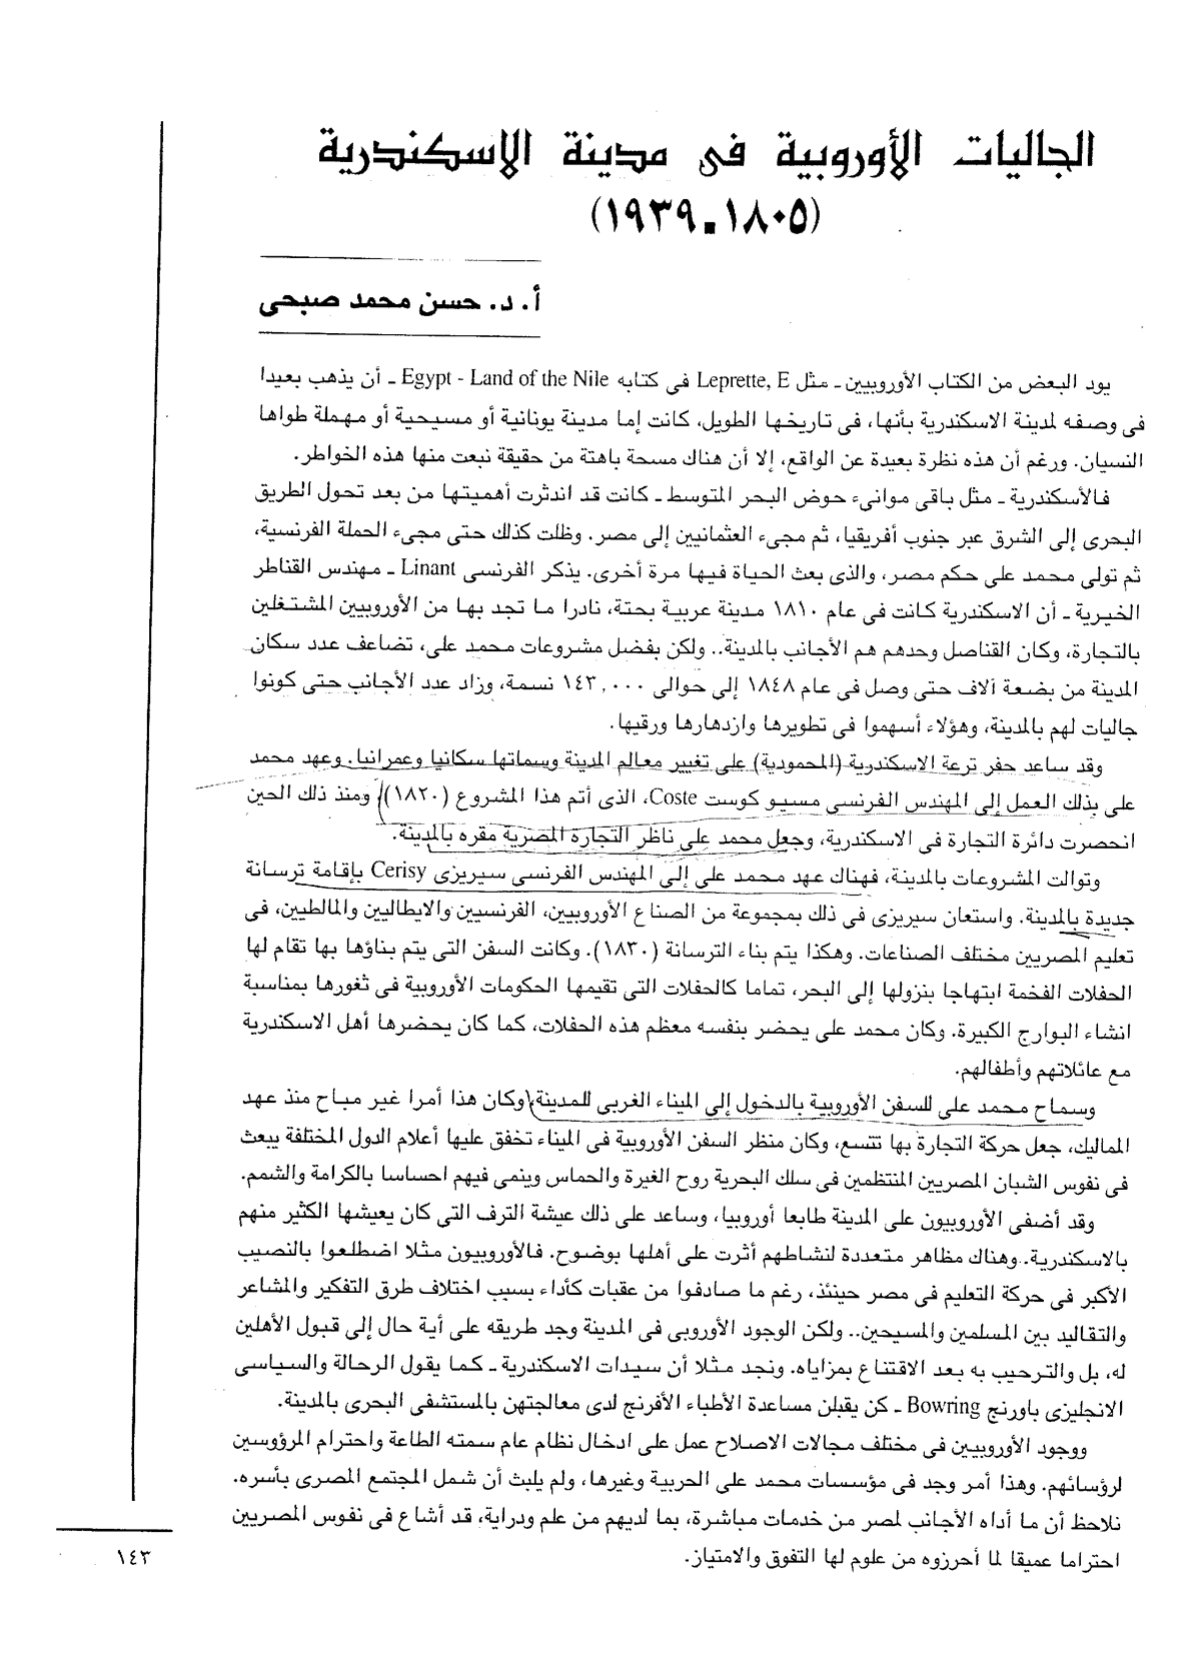 الجاليات الأوروبية فى مدينة الاسكندرية
(١٨٠٥ـ١٩٣٩)
أ. د. حسن محمد صبحى
يود البعض من الكتاب الأوروبيين ـ مثل Leprette, E فى كتابه Egypt - Land of the Nile ـ أن يذهب بعيدا
فى وصفه لمدينة الاسكندرية بأنها، فى تاريخها الطويل، كانت إما مدينة يونانية أو مسيحية أو مهملة طواها
النسيان. ورغم أن هذه نظرة بعيدة عن الواقع، إلا أن هناك مسحة باهتة من حقيقة نبعت منها هذه الخواطر.
فالأسكندرية ـ مثل باقى موانىء حوض البحر المتوسط ـ كانت قد اندثرت أهميتها من بعد تحول الطريق
البحرى إلى الشرق عبر جنوب أفريقيا، ثم مجىء العثمانيين إلى مصر. وظلت كذلك حتى مجىء الحملة الفرنسية،
ثم تولى محمد على حكم مصر، والذى بعث الحياة فيها مرة أخرى. يذكر الفرنسى Linant ـ مهندس القناطر
الخيرية ـ أن الاسكندرية كانت فى عام ١٨١٠ مدينة عربية بحتة، نادرا ما تجد بها من الأوروبيين المشتغلين
بالتجارة، وكان القناصل وحدهم هم الأجانب بالمدينة.. ولكن بفضل مشروعات محمد على، تضاعف عدد سكان
المدينة من بضعة آلاف حتى وصل فى عام ١٨٤٨ إلى حوالى ١٤٣,٠٠٠ نسمة، وزاد عدد الأجانب حتى كونوا
جاليات لهم بالمدينة، وهؤلاء أسهموا فى تطويرها وازدهارها ورقيها.
وقد ساعد حفر ترعة الاسكندرية (المحمودية) على تغيير معالم المدينة وسماتها سكانيا وعمرانيا. وعهد محمد
على بذلك العمل إلى المهندس الفرنسى مسيو كوست Coste، الذى أتم هذا المشروع (١٨٢٠) ومنذ ذلك الحين
انحصرت دائرة التجارة فى الاسكندرية، وجعل محمد على ناظر التجارة المصرية مقره بالمدينة.
وتوالت المشروعات بالمدينة، فهناك عهد محمد على إلى المهندس الفرنسى سيريزى Cerisy بإقامة ترسانة
جديدة بالمدينة. واستعان سيريزى فى ذلك بمجموعة من الصناع الأوروبيين، الفرنسيين والايطاليين والمالطيين، فى
تعليم المصريين مختلف الصناعات. وهكذا يتم بناء الترسانة (١٨٣٠). وكانت السفن التى يتم بناؤها بها تقام لها
الحفلات الفخمة ابتهاجا بنزولها إلى البحر، تماما كالحفلات التى تقيمها الحكومات الأوروبية فى ثغورها بمناسبة
انشاء البوارج الكبيرة. وكان محمد على يحضر بنفسه معظم هذه الحفلات، كما كان يحضرها أهل الاسكندرية
مع عائلاتهم وأطفالهم.
وسماح محمد على للسفن الأوروبية بالدخول إلى الميناء الغربى للمدينة، وكان هذا أمرا غير مباح منذ عهد
المماليك، جعل حركة التجارة بها تتسع، وكان منظر السفن الأوروبية فى الميناء تخفق عليها أعلام الدول المختلفة يبعث
فى نفوس الشبان المصريين المنتظمين فى سلك البحرية روح الغيرة والحماس وينمى فيهم احساسا بالكرامة والشمم.
وقد أضفى الأوروبيون على المدينة طابعا أوروبيا، وساعد على ذلك عيشة الترف التى كان يعيشها الكثير منهم
بالاسكندرية.. وهناك مظاهر متعددة لنشاطهم أثرت على أهلها بوضوح. فالأوروبيون مثلا اضطلعوا بالنصيب
الأكبر فى حركة التعليم فى مصر حينئذ، رغم ما صادفوا من عقبات كأداء بسبب اختلاف طرق التفكير والمشاعر
والتقاليد بين المسلمين والمسيحين.. ولكن الوجود الأوروبى فى المدينة وجد طريقه على أية حال إلى قبول الأهلين
له، بل والترحيب به بعد الاقتناع بمزاياه. ونجد مثلا أن سيدات الاسكندرية ـ كما يقول الرحالة والسياسى
الانجليزى باورنج Bowring ـ كن يقبلن مساعدة الأطباء الأفرنج لدى معالجتهن بالمستشفى البحرى بالمدينة.
ووجود الأوروبيين فى مختلف مجالات الاصلاح عمل على ادخال نظام عام سمته الطاعة واحترام المرؤوسين
لرؤسائهم. وهذا أمر وجد فى مؤسسات محمد على الحربية وغيرها، ولم يلبث أن شمل المجتمع المصرى بأسره.
نلاحظ أن ما أداه الأجانب لمصر من خدمات مباشرة، بما لديهم من علم ودراية، قد أشاع فى نفوس المصريين
احتراما عميقا لما أحرزوه من علوم لها التفوق والامتياز.
١٤٣